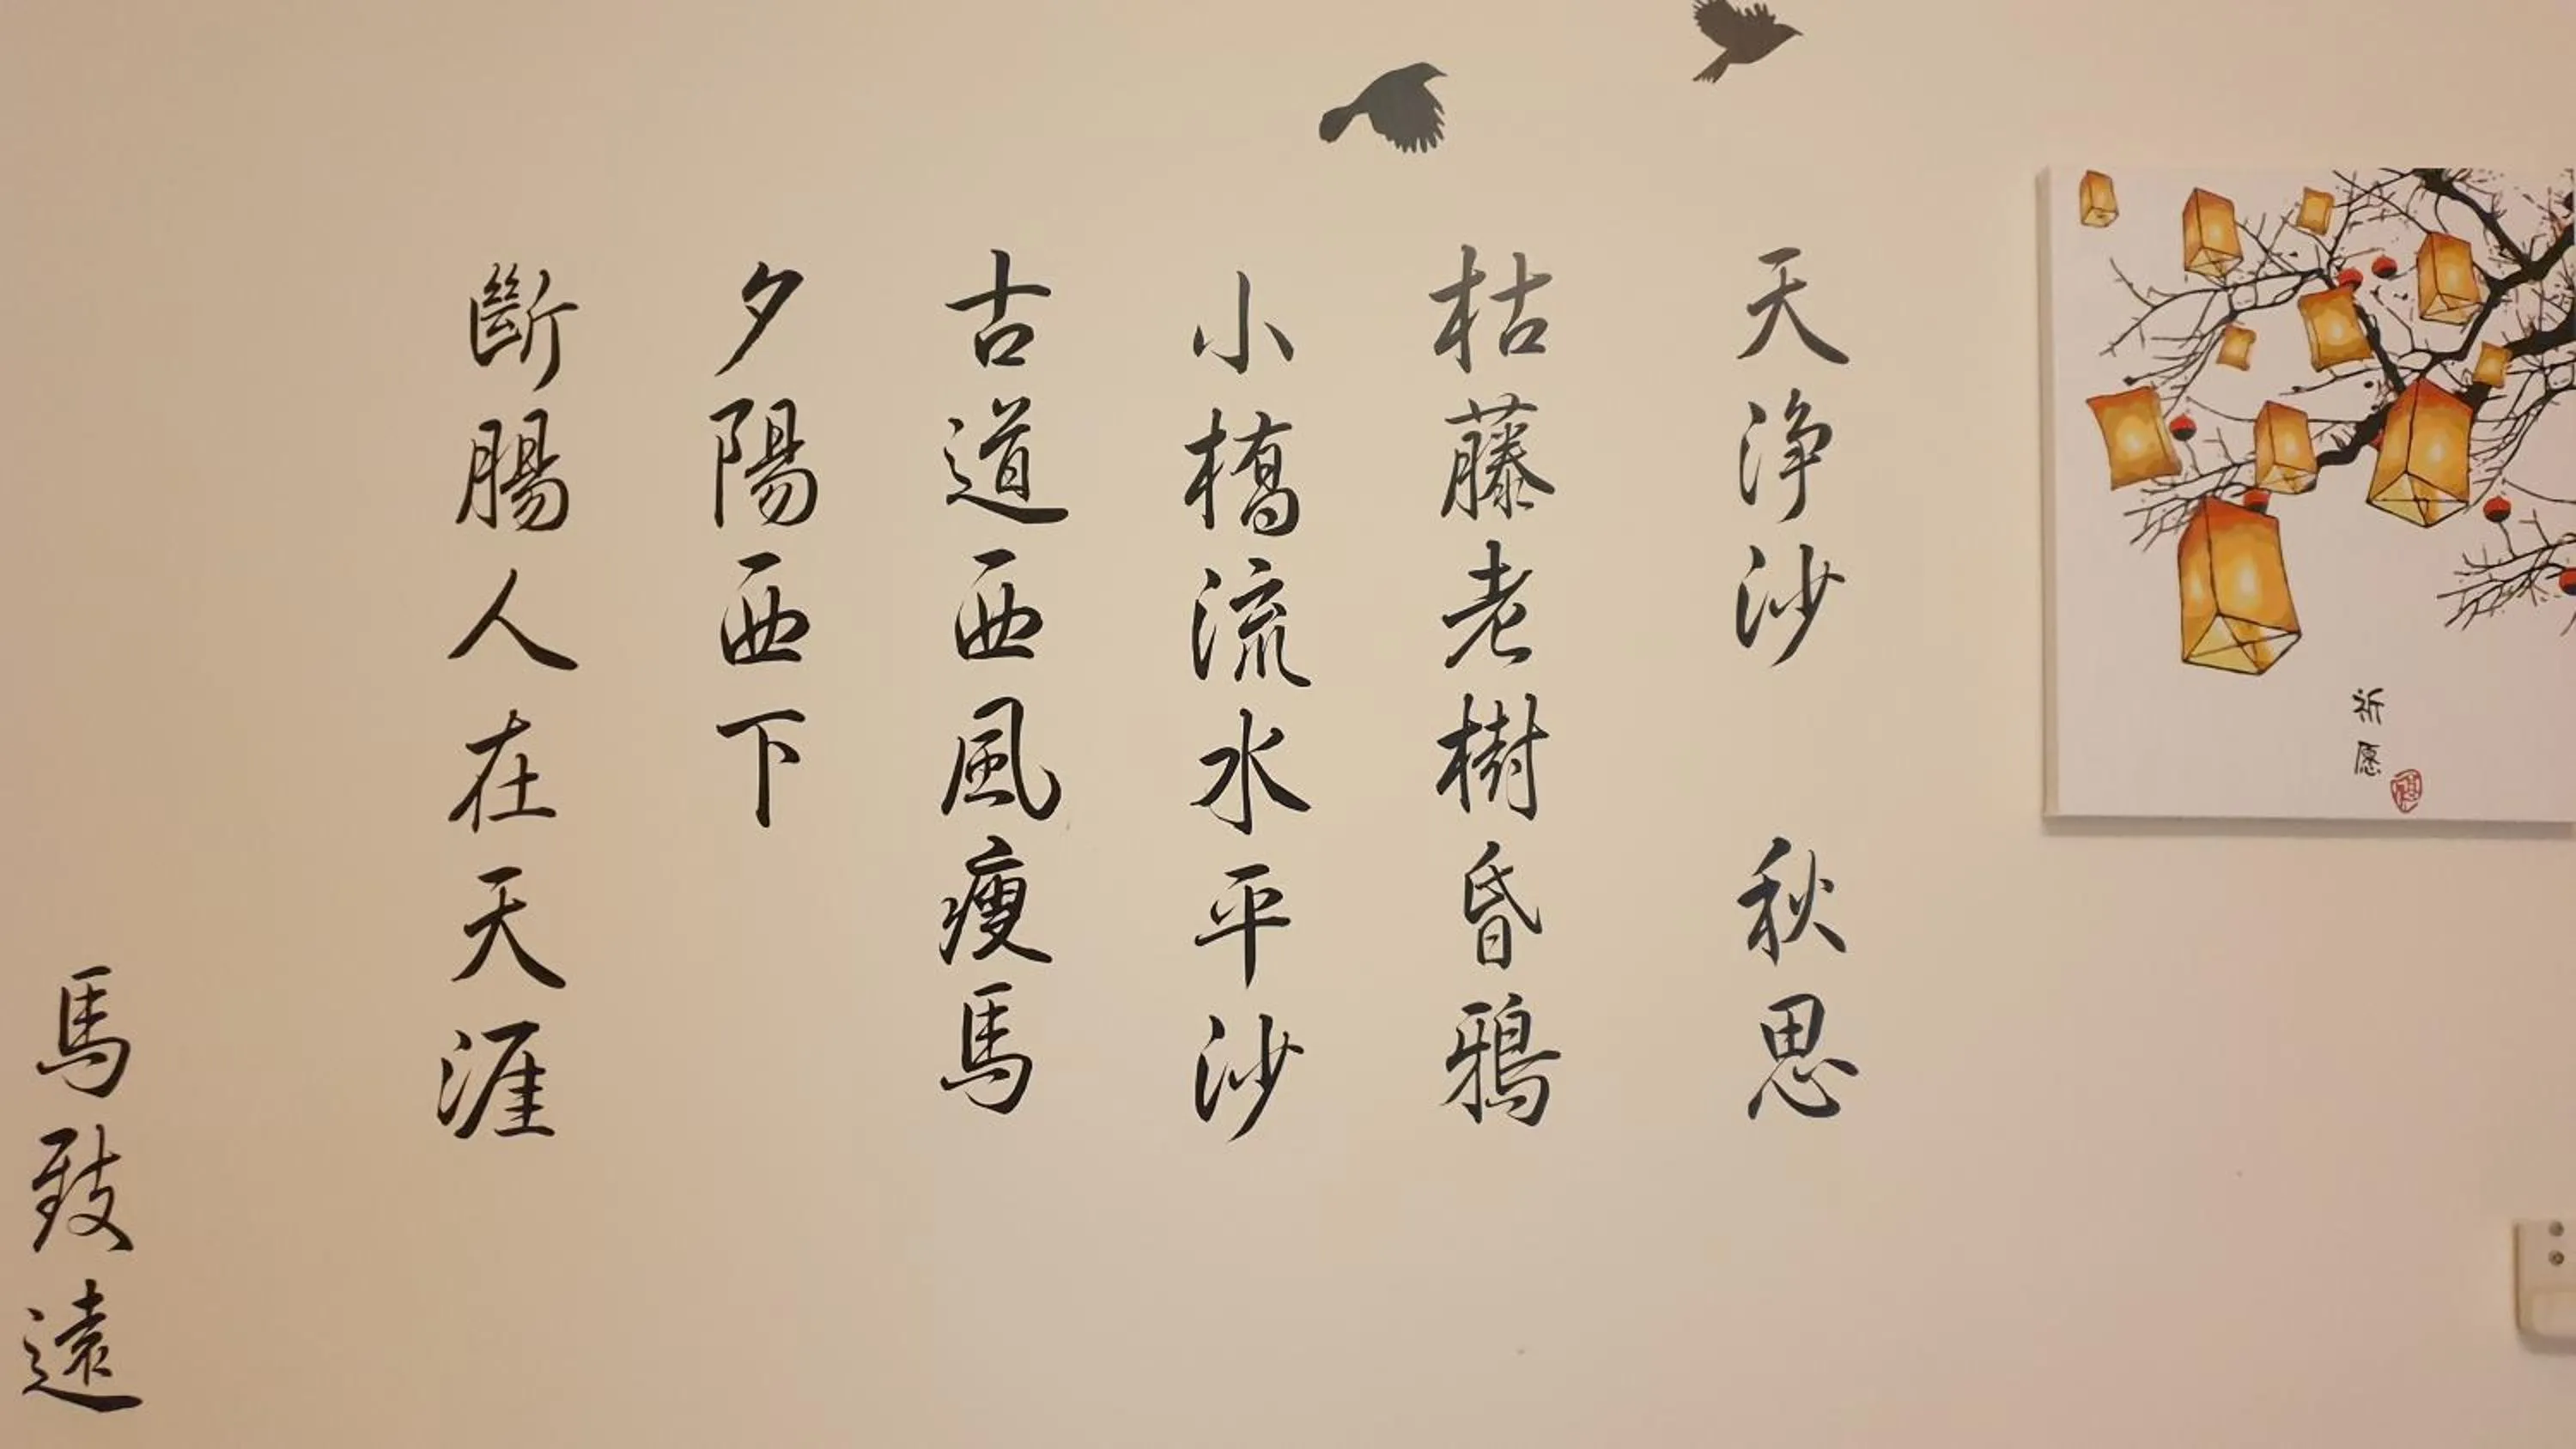 天淨沙 秋思
枯藤老樹昏鴉
小橋流水平沙
古道西風瘦馬
夕陽西下
斷腸人在天涯
馬致遠
祈愿